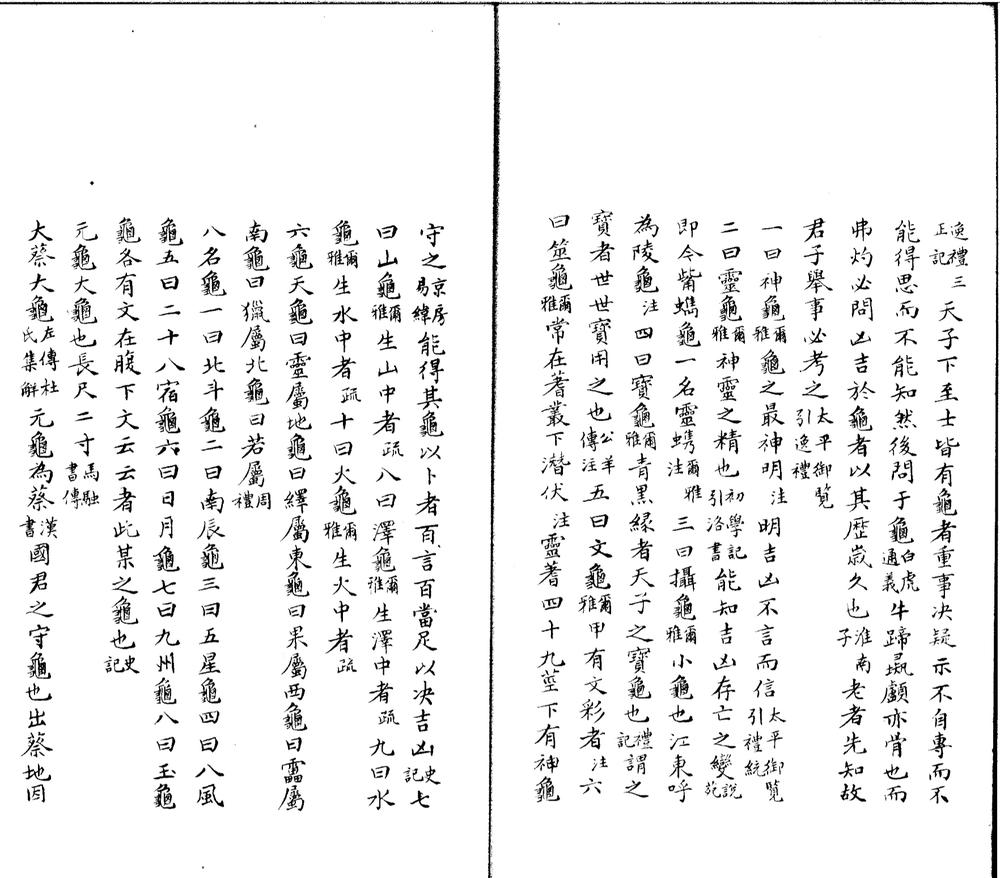 逸禮正記三天子下至士皆有龜者重事决疑示不自專而不
能得思而不能知然後問于龜白虎通義牛蹄彘顱亦骨也而
弗灼必問凶吉於龜者以其歷歲久也淮南子老者先知故
君子舉事必考之太平御覽引逸禮
一曰神龜爾雅龜之最神明注明吉凶不言而信太平御覽引禮統
二曰靈龜爾雅神靈之精也初學記引洛書能知吉凶存亡之變說苑
即今觜蠵龜一名靈蠵爾雅注三曰攝龜爾雅小龜也江東呼
為陵龜注四曰寶龜爾雅青黑緣者天子之寶龜也禮記謂之
寶者世世寶用之也公羊傳注五曰文龜爾雅甲有文彩者注六
曰筮龜爾雅常在蓍叢下潛伏注靈蓍四十九莖下有神龜
守之京房易緯能得其龜以卜者百言百當足以决吉凶史記七
曰山龜爾雅生山中者疏八曰澤龜爾雅生澤中者疏九曰水
龜爾雅生水中者疏十曰火龜爾雅生火中者疏
六龜天龜曰靈屬地龜曰繹屬東龜曰果屬西龜曰靁屬
南龜曰獵屬北龜曰若屬周禮
八名龜一曰北斗龜二曰南辰龜三曰五星龜四曰八風
龜五曰二十八宿龜六曰日月龜七曰九州龜八曰玉龜
龜各有文在腹下文云云者此某之龜也史記
元龜大龜也長尺二寸馬融書傳
大蔡大龜左傳杜氏集解元龜為蔡漢書國君之守龜也出蔡地因